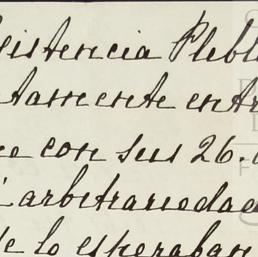 sistencia Pleb
tamente entr
con sus 26.
arbitrariedad
de lo esperaban